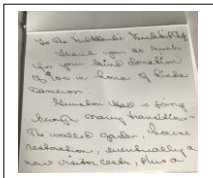 To the
Thank you so much
for your kind donation
of $100 in honor of Linda
Cameron.
Hall is going
through many transitions -
The walled garden, house
restoration, eventually a
new visitor center, plus a